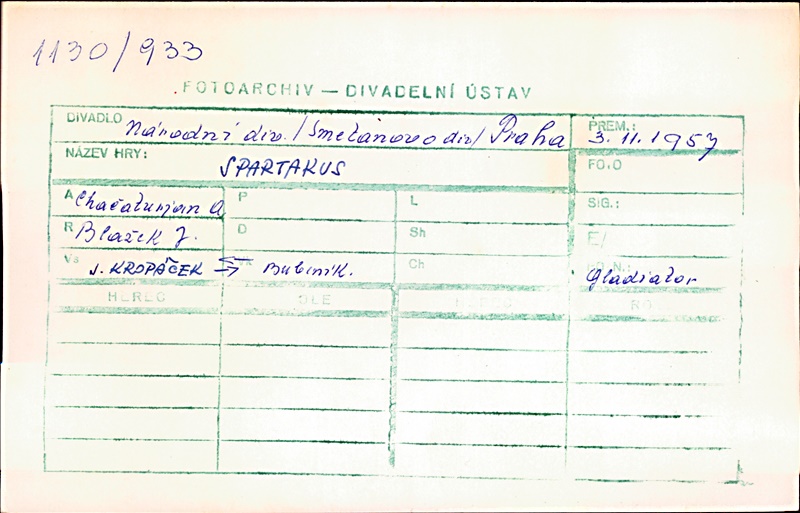 1130/933
FOTOARCHIV — DIVADELNÍ ÚSTAV
DIVADLO Národní div. /Smetanovo div/ Praha PREM.: 3. 11. 1957
NÁZEV HRY: SPARTAKUS FOTO
A Chačaturjan A P L SIG.:
R Blažek J. D Sh E/
Vs J. KROPÁČEK Bubeník. Ch Gladiator
HEREC OLE HEREC RO